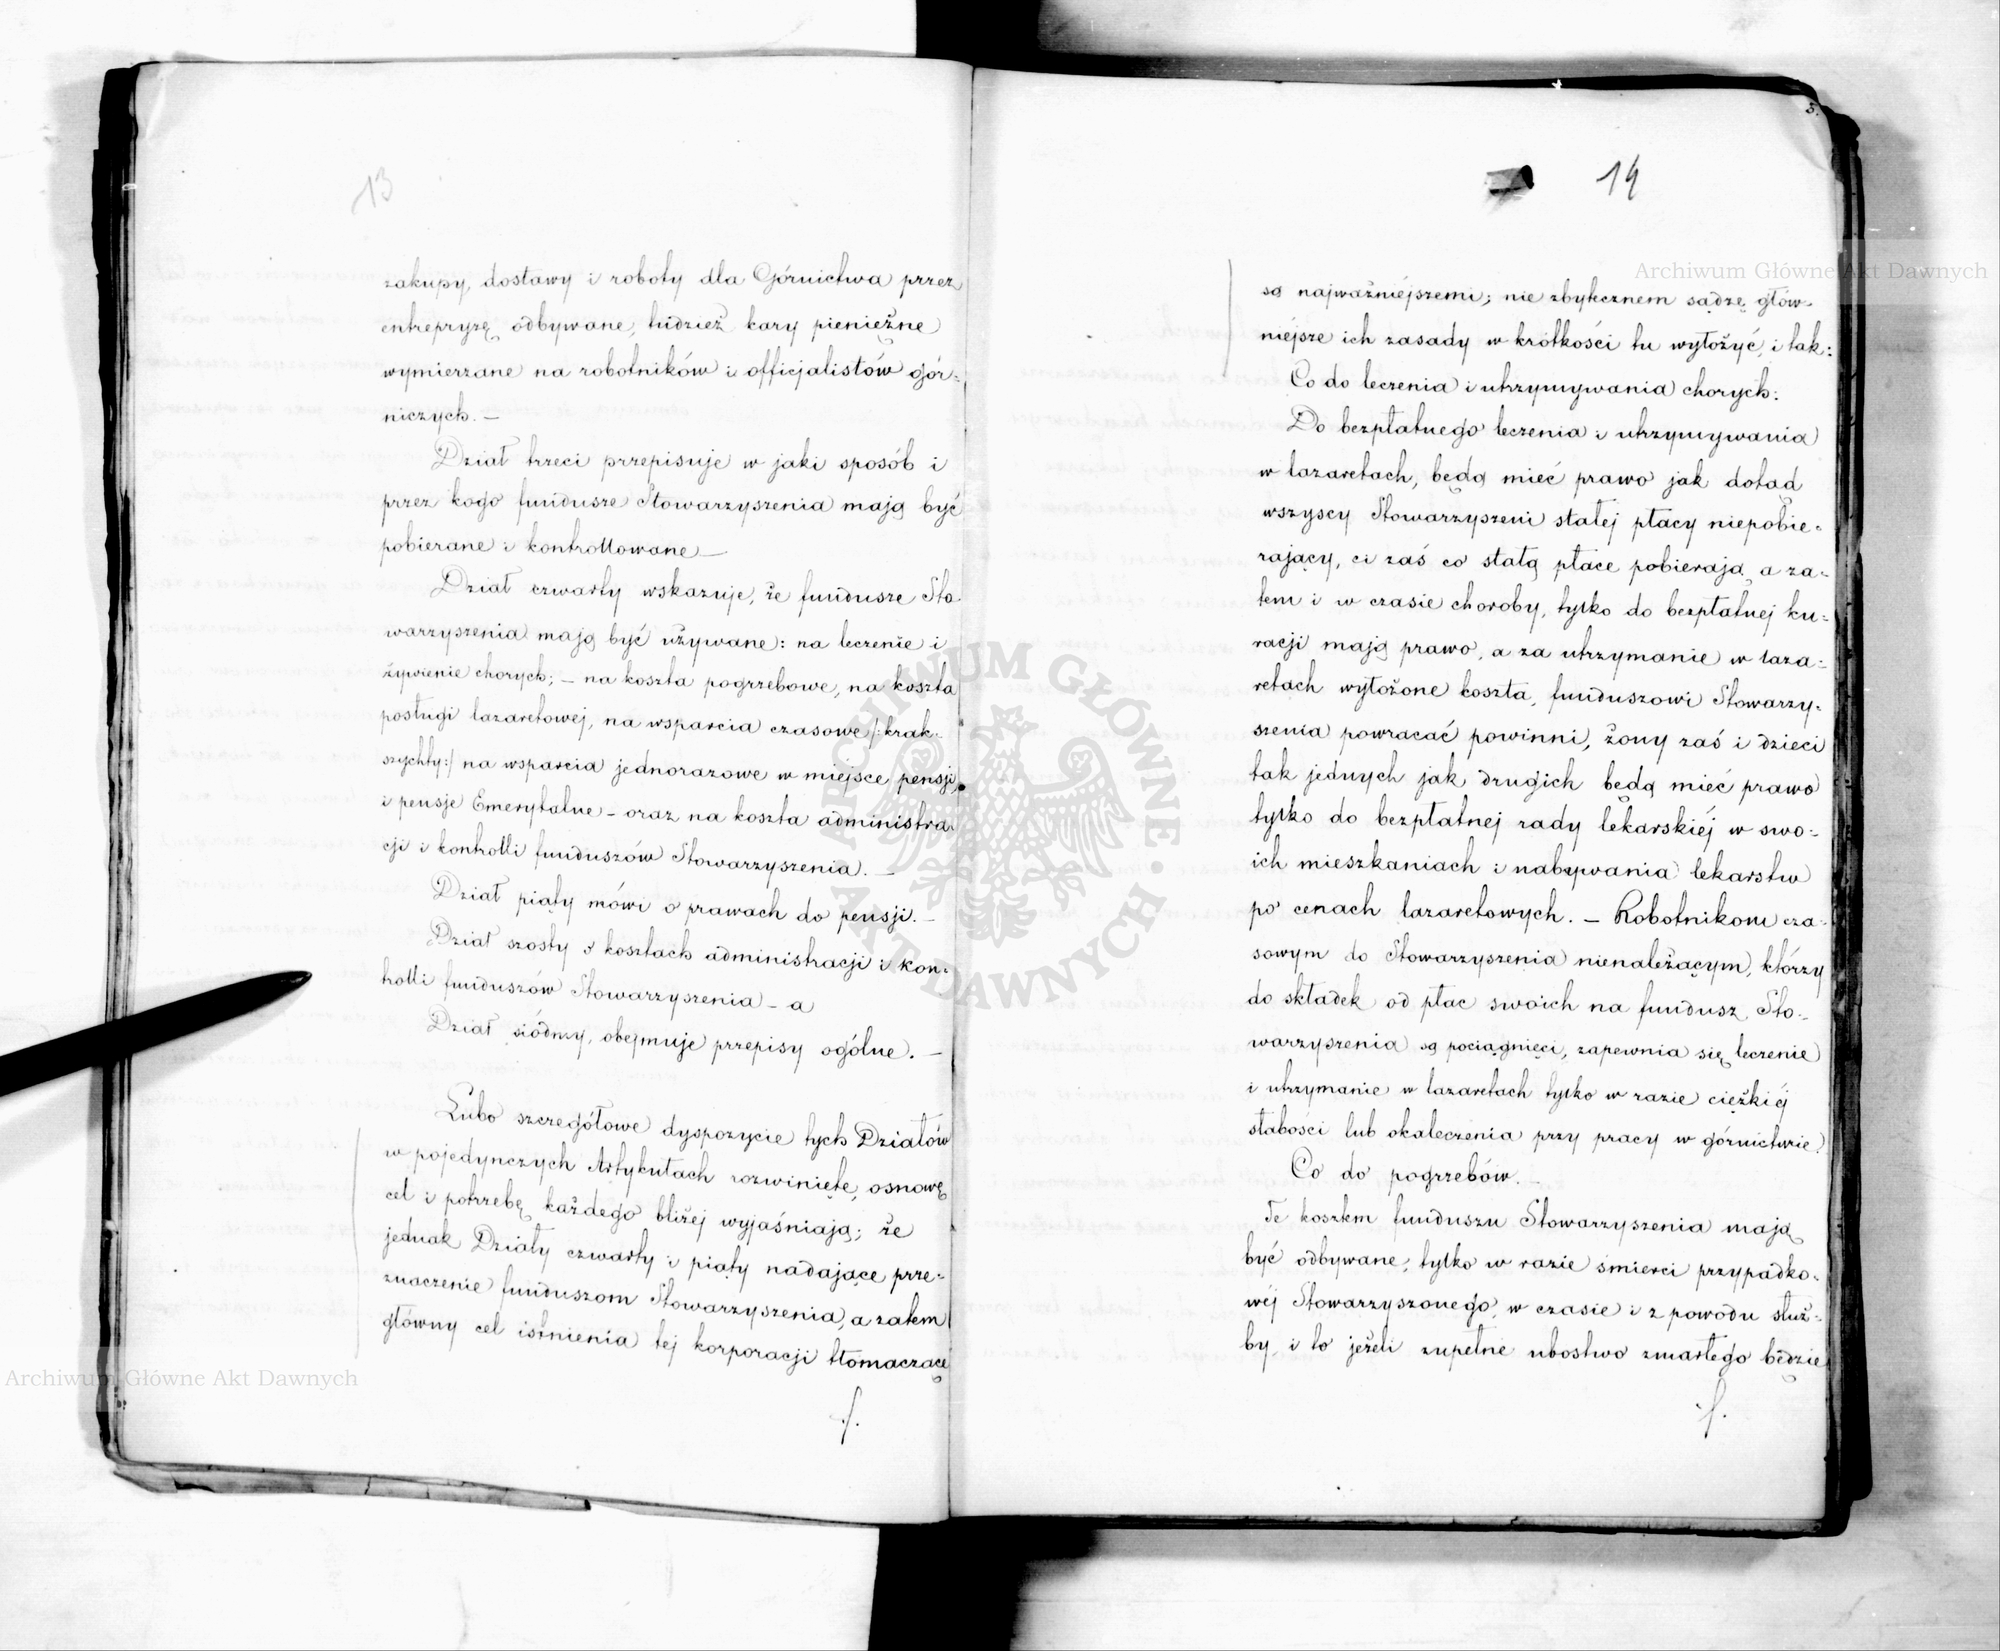 13
zakupy, dostawy i roboty dla Górnictwa przez
entrepryzę odbywane, tudzież kary pieniężne
wymierzane na robotników i officjalistów gór-
niczych. —
Dział trzeci przepisuje w jaki sposób i
przez kogo fundusze Stowarzyszenia mają być
pobierane i kontrollowane —
Dział czwarty wskazuje, że fundusze Sto-
warzyszenia mają być używane: na leczenie i
żywienie chorych; — na koszta pogrzebowe, na koszta
posługi lazaretowej, na wsparcia czasowe /: krak-
szychty:/ na wsparcia jednorazowe w miejsce pensji,
i pensje Emerytalne — oraz na koszta administra-
cji i kontrolli funduszów Stowarzyszenia. —
Dział piąty mówi o prawach do pensji. —
Dział szósty o kosztach administracji i kon-
trolli funduszów Stowarzyszenia — a
Dział siódmy, obejmuje przepisy ogólne. —
Lubo szczegółowe dyspozycie tych Działów
w pojedynczych Artykułach rozwinięte, osnowę
cel i potrzebę każdego bliżej wyjaśniają; że
jednak Działy czwarty i piąty nadające prze-
znaczenie funduszom Stowarzyszenia, a zatem
główny cel istnienia tej korporacji tłomaczące
./.
5.
14
są najważniejszemi; nie zbytecznem sądzę głów-
niejsze ich zasady w krótkości tu wyłożyć, i tak:
Co do leczenia i utrzymywania chorych:
Do bezpłatnego leczenia i utrzymywania
w lazaretach, będą mieć prawo jak dotąd
wszyscy Stowarzyszeni stałej płacy niepobie-
rający, ci zaś co stałą płace pobierają a za-
tem i w czasie choroby, tylko do bezpłatnej ku-
racji mają prawo, a za utrzymanie w laza-
retach wyłożone koszta, funduszowi Stowarzy-
szenia powracać powinni, żony zaś i dzieci
tak jednych jak drugich będą mieć prawo
tylko do bezpłatnej rady lekarskiéj w swo-
ich mieszkaniach i nabywania lekarstw
po cenach lazaretowych. — Robotnikom cza-
sowym do Stowarzyszenia nienależącym, którzy
do składek od płac swoich na fundusz Sto-
warzyszenia są pociągnięci, zapewnia się leczenie
i utrzymanie w lazaretach tylko w razie ciężkiéj
słabości lub okaleczenia przy pracy w górnictwie.
Co do pogrzebów. —
Te kosztem funduszu Stowarzyszenia mają
być odbywane, tylko w razie śmierci przypadko-
wéj Stowarzyszonego, w czasie i z powodu służ-
by, i to jeżeli zupełne ubóstwo zmarłego będzie
./.
Archiwum Główne Akt Dawnych
Archiwum Główne Akt Dawnych
ARCHIWUM GŁÓWNE AKT DAWNYCH